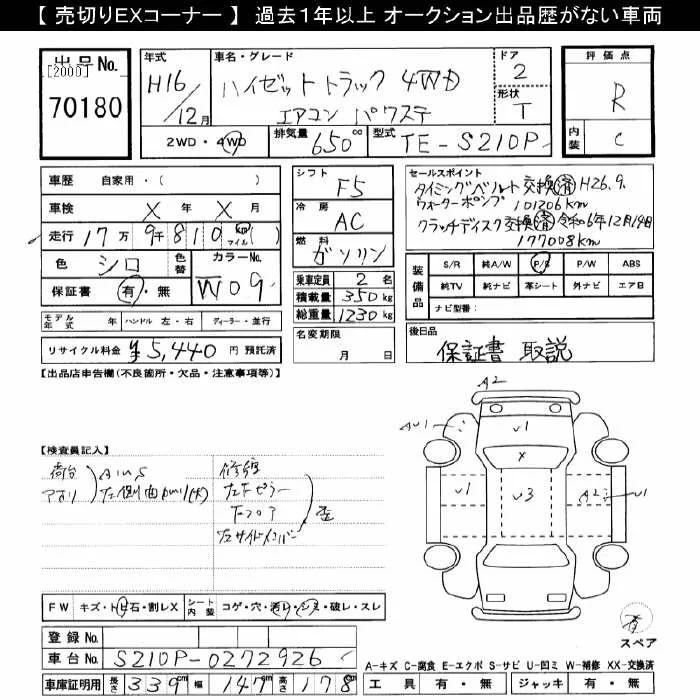 【 売切りEXコーナー 】 過去１年以上 オークション出品歴がない車両
出品No.
[2000]
70180
年式
H16/12月
車名・グレード
ハイゼットトラック 4WD
エアコン パワステ
ドア
2
形状
T
評価点
R
内装
C
2WD・4WD
排気量 650cc
型式 TE-S210P
車歴 自家用・( )
車検 X 年 X 月
走行 17万9千810 km マイル ( )
色 シロ 色替
カラーNo. W09
保証書 有・無
モデル年式 年 ハンドル 左・右 ディーラー・並行
リサイクル料金 ¥5,440 円 預託済
シフト F5
冷房 AC
燃料 ガソリン
乗車定員 2 名
積載量 350 kg
総重量 1230 kg
名変期限
月 日
セールスポイント
タイミングベルト交換済 H26.9.
ウォーターポンプ 101206km
クラッチディスク交換済 令和6年12月19日
177008km
装備品
S/R 純A/W P/S P/W ABS
純TV 純ナビ 革シート 外ナビ エアB
ナビ型番：
後日品
保証書 取説
【出品店申告欄(不良箇所・欠品・注意事項等)】
【検査員記入】
荷台
アオリ
修復
左Fピラー
Fフロア
左サイドメンバー
歪
A2
AU1
U1
X
U1
U3
A2
U1
有
スペア
FW キズ・トビ石・割レX シート内装 コゲ・穴・汚レ・シミ・破レ・スレ
登録No.
車台No. S210P-0272926
車庫証明用 長さ 339cm 幅 147cm 高さ 178cm
A-キズ C-腐食 E-エクボ S-サビ U-凹ミ W-補修 XX-交換済
工具 有・無 ジャッキ 有・無